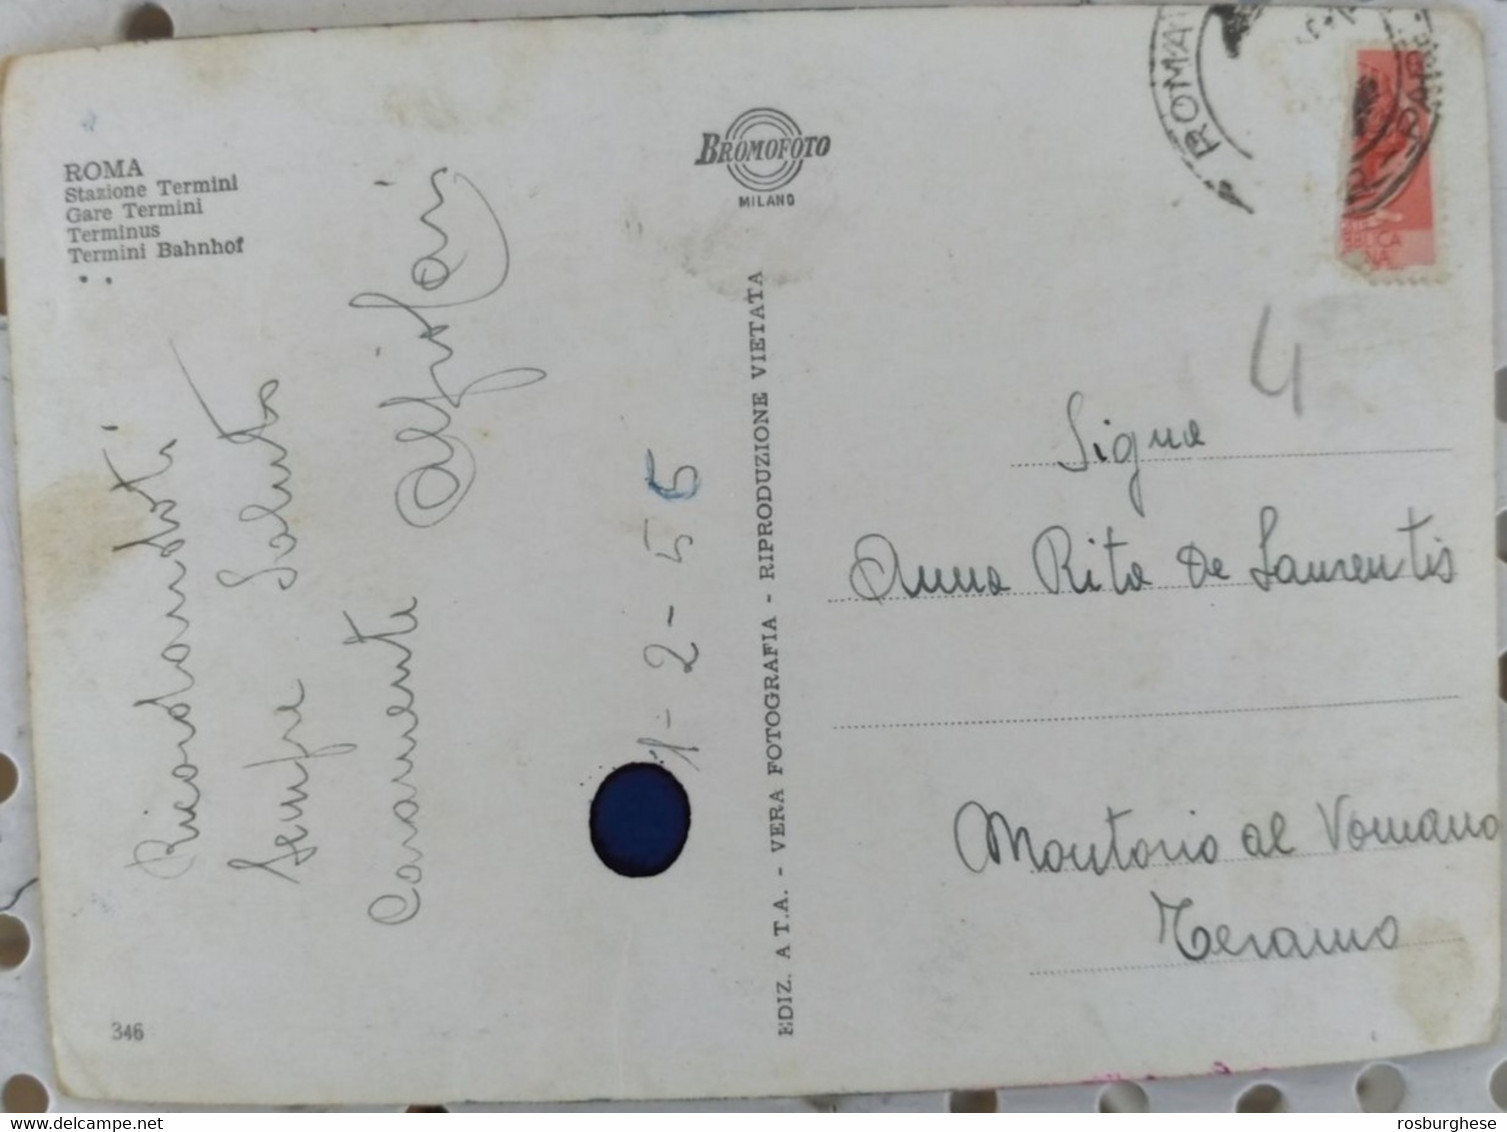 ROMA
Stazione Termini
Gare Termini
Terminus
Termini Bahnhof
Ricordandoti
sempre Saluto
Caramente
1-2-55
346
BROMOFOTO
MILANO
EDIZ. A T.A. - VERA FOTOGRAFIA - RIPRODUZIONE VIETATA
ROMA
BBLICA
4
Signa
Anna Rita De Laurentis
Montorio al Vomano
Teramo
delcampe.net
rosburghese